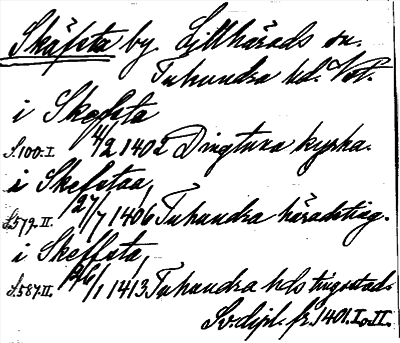 Skäfsta by. Lillhärads sn.
Tuhundra hd. Vstm.
i Skefsta
S.100.I. 4/2 1402 Dingtuna kyrka.
i Skefstaa,
S.579.II. 27/7 1406 Tuhundra häradsting.
i Skeffsta,
S.587.II. 26/1 1413 Tuhundra hds tingsstad.
Sv. dipl. fr. 1401. I o. II.